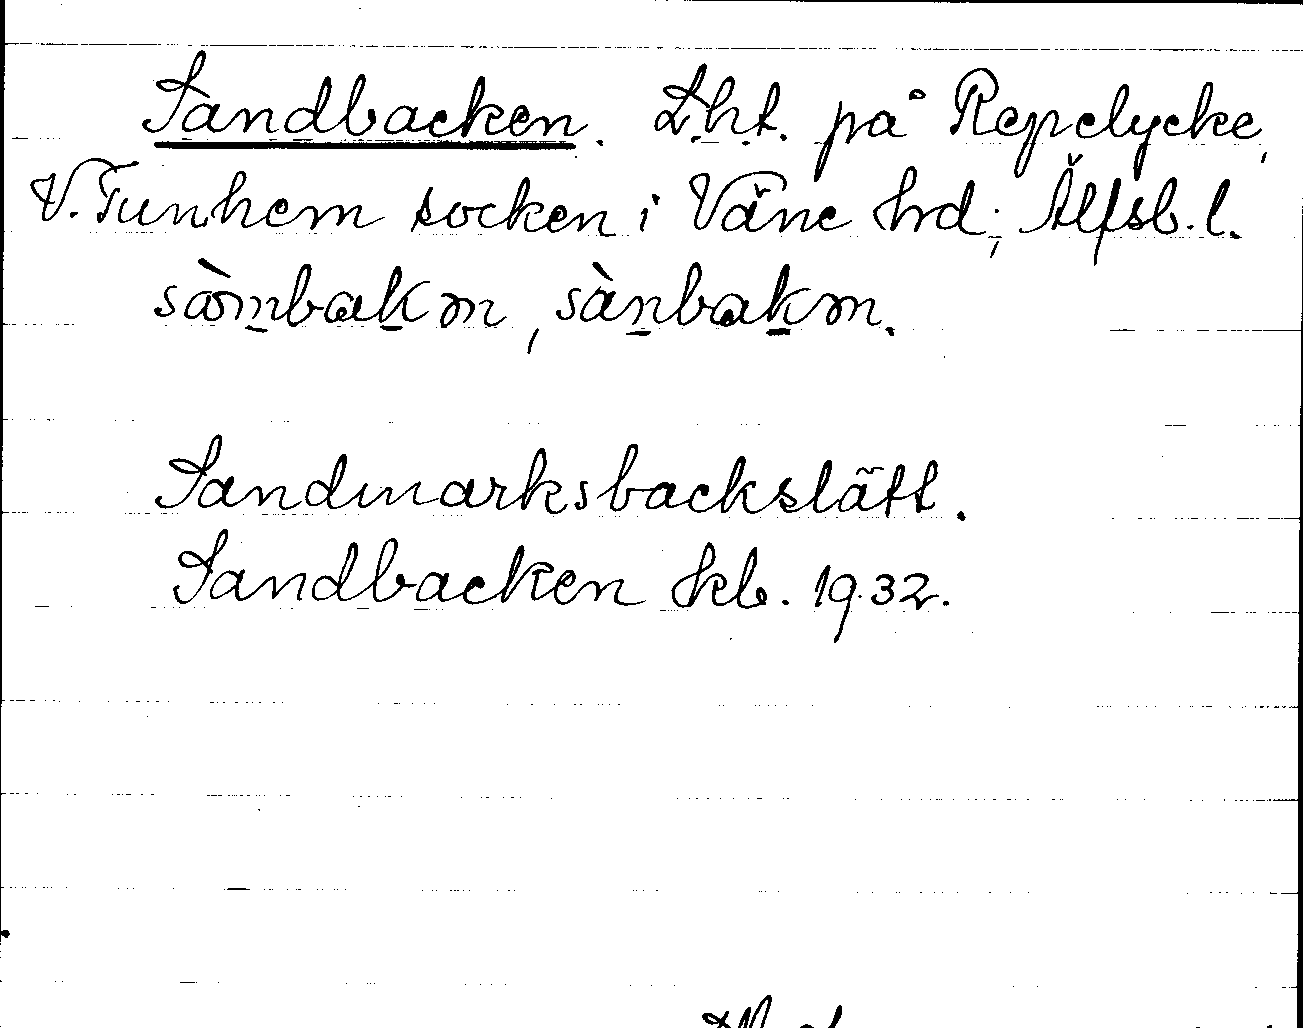 Sandbacken. L.h.t. på Repelycke,
V. Tunhem socken i Väne hrd; Älfsb. l.
sàmbakm, sànbakm.
Sandmarksbackslätt.
Sandbacken kb. 1932.